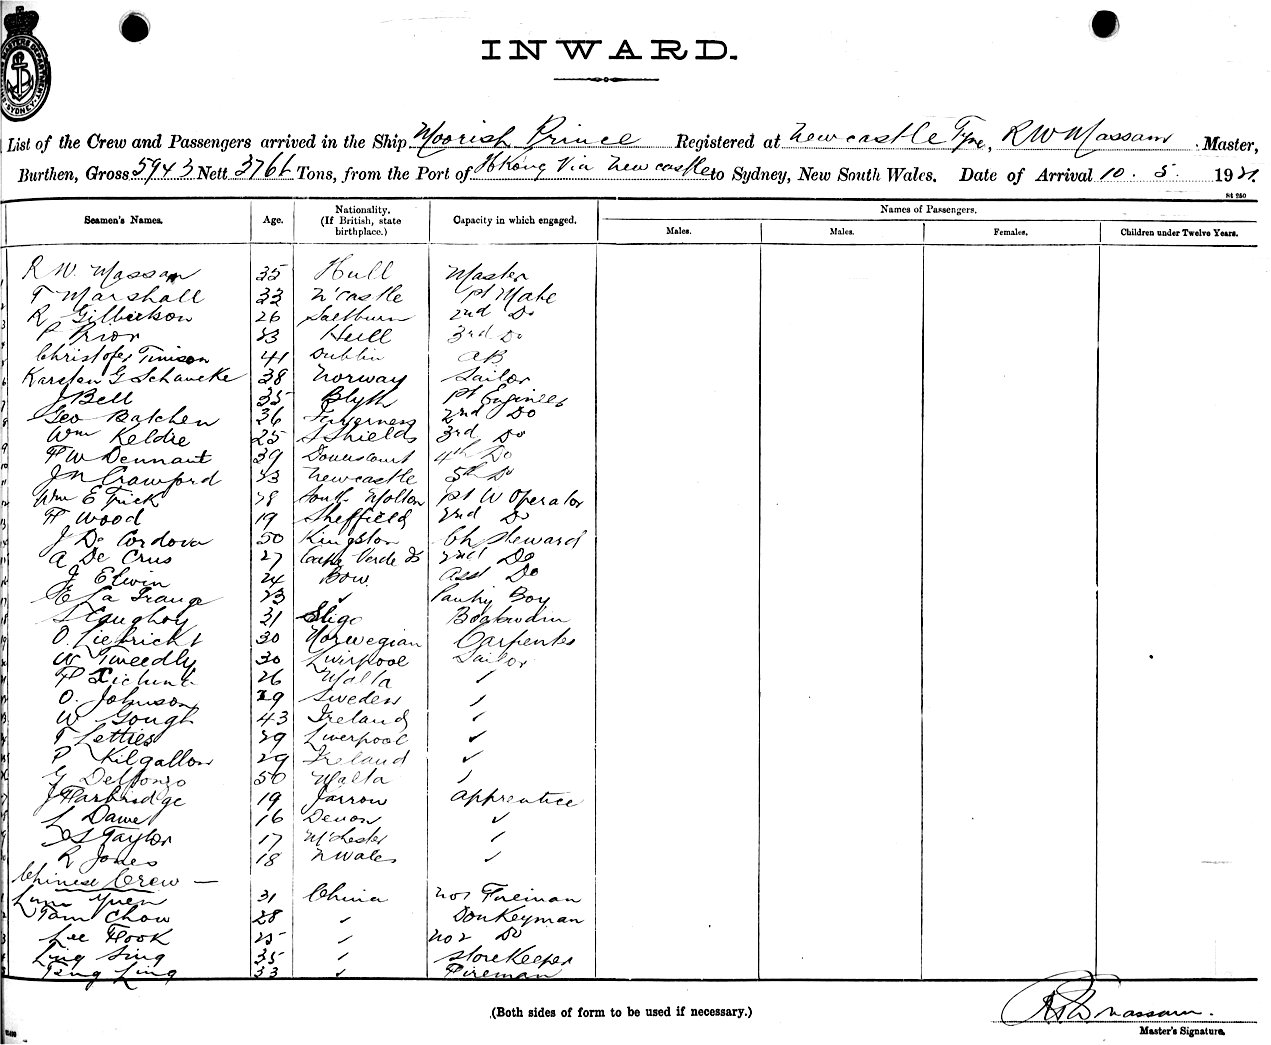 INWARD.
List of the Crew and Passengers arrived in the Ship Moorish Prince Registered at Newcastle Tyne, R W Massam Master,
Burthen, Gross 5943 Nett 3766 Tons, from the Port of HKong Via Newcastle to Sydney, New South Wales. Date of Arrival 10. 5. 1921.
Seamen's Names. Age. Nationality. (If British, state birthplace.) Capacity in which engaged. Names of Passengers.
Males. Males. Females. Children under Twelve Years.
R W Massam 35 Hull Master
T Marshall 33 N'castle 1st Mate
R Gilbertson 26 Saltburn 2nd Do
P Prior 23 Hull 3rd Do
Christofer Timison 41 Dublin AB
Karsten G Schancke 38 Norway Sailor
J Bell 35 Blyth 1st Engineer
Geo Batchen 36 Inverness 2nd Do
Wm Keldie 25 S Shields 3rd Do
F W Dennant 39 Dovercourt 4th Do
J N Crawford 23 Newcastle 5th Do
Wm E Trick 28 South Molton 1st W Operator
H Wood 19 Sheffield 2nd Do
J De Cordova 50 Kingston Ch Steward
A De Crus 27 Cape Verde Is 2nd Do
J Elwin 24 Bow Asst Do
E La Grange 23 ✓ Pantry Boy
31 Sligo Boatswain
O Liebricht 30 Norwegian Carpenter
W Tweedly 30 Liverpool Sailor
26 Malta ✓
O. Johnson 29 Sweden ✓
W Gough 43 Ireland ✓
T Letties 29 Liverpool ✓
P Kilgallon 29 Ireland ✓
G Delfonzo 50 Malta ✓
J Harbridge 19 Jarrow Apprentice
L Dawe 16 Devon ✓
S Taylor 17 M'chester ✓
R Jones 18 N Wales ✓
Chinese Crew —
Lum Yuen 31 China No1 Fireman
Tam Chow 28 ✓ Donkeyman
Lee Hook 25 ✓ No2 Do
Ling Sing 35 ✓ Storekeeper
Tang Ling 33 ✓ Fireman
(Both sides of form to be used if necessary.)
R W Massam.
Master's Signature.